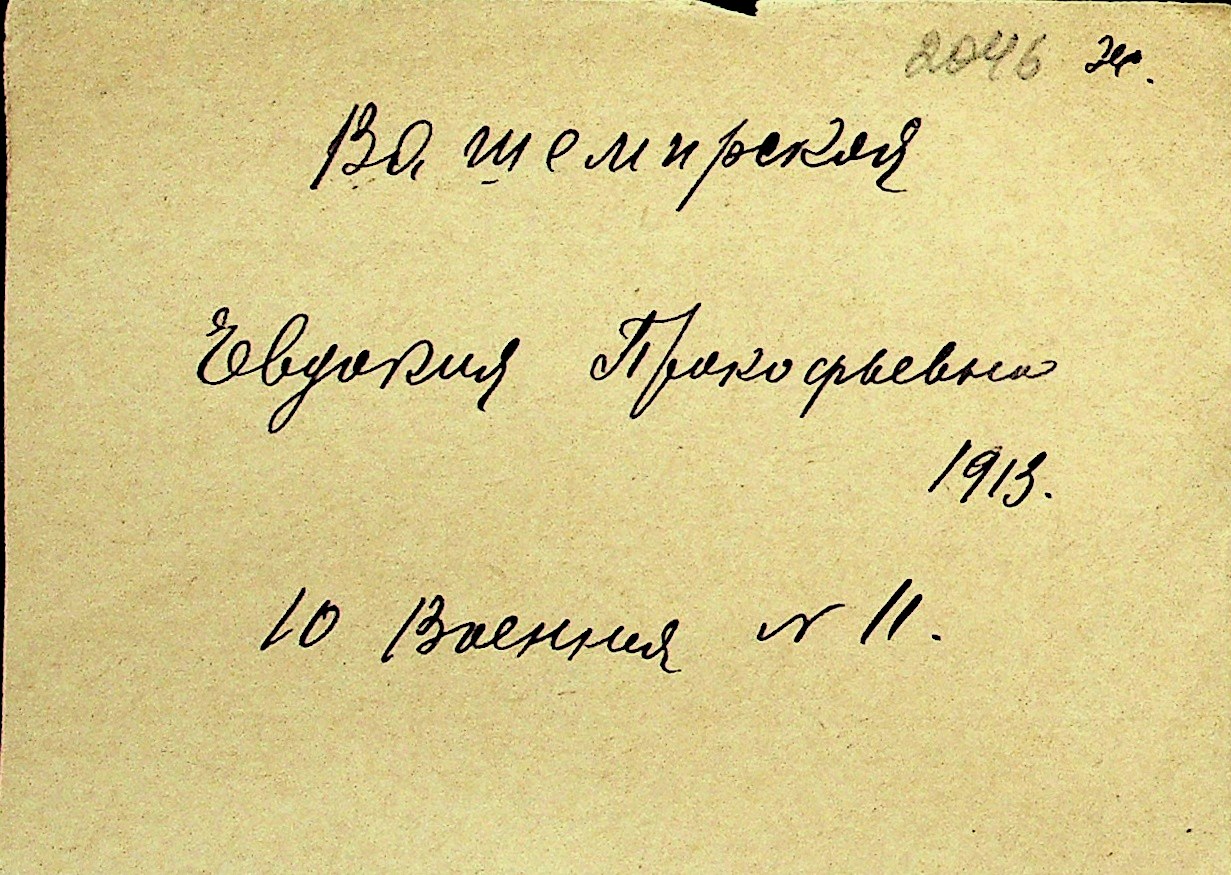 2046 ж.
Вашемирская
Евдокия Прокофьевна
1913.
10 Военная № 11.